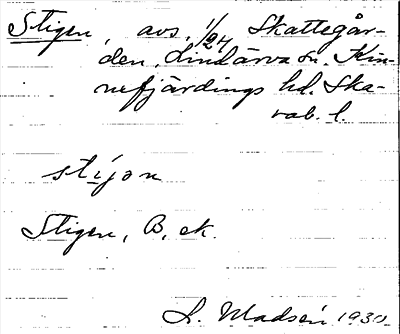 Stigen, avs. 1/24 Skattegår-
den, Lindärva sn. Kin-
nefjärdings hd. Ska-
rab. l.
stigon
Stigen, B, ek.
L. Madsén 1930